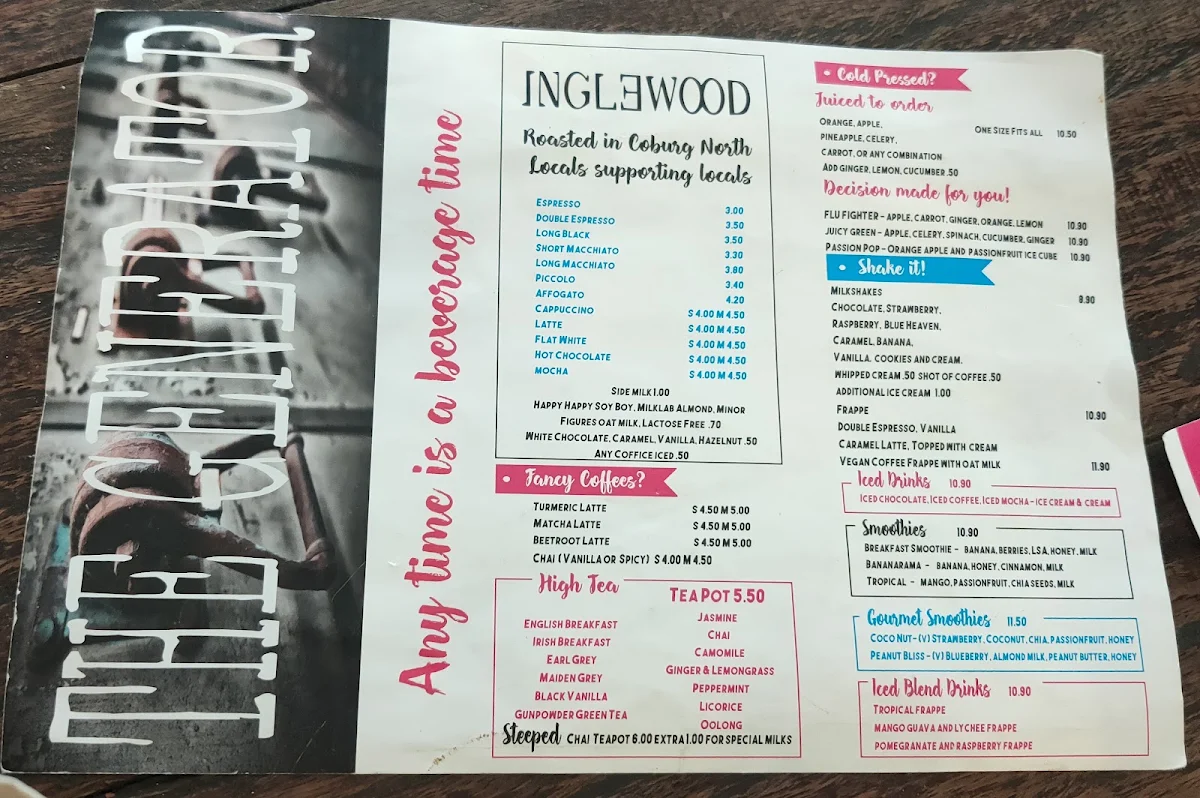 THE GENERATOR
Any time is a beverage time
INGLEWOOD
Roasted in Coburg North
Locals supporting locals
ESPRESSO 3.00
DOUBLE ESPRESSO 3.50
LONG BLACK 3.50
SHORT MACCHIATO 3.30
LONG MACCHIATO 3.80
PICCOLO 3.40
AFFOGATO 4.20
CAPPUCCINO S 4.00 M 4.50
LATTE S 4.00 M 4.50
FLAT WHITE S 4.00 M 4.50
HOT CHOCOLATE S 4.00 M 4.50
MOCHA S 4.00 M 4.50
SIDE MILK 1.00
HAPPY HAPPY SOY BOY, MILKLAB ALMOND, MINOR
FIGURES OAT MILK, LACTOSE FREE .70
WHITE CHOCOLATE, CARAMEL, VANILLA, HAZELNUT .50
ANY COFFICE ICED .50
• Fancy Coffees?
TURMERIC LATTE S 4.50 M 5.00
MATCHA LATTE S 4.50 M 5.00
BEETROOT LATTE S 4.50 M 5.00
CHAI (VANILLA OR SPICY) S 4.00 M 4.50
High Tea
TEA POT 5.50
ENGLISH BREAKFAST
IRISH BREAKFAST
EARL GREY
MAIDEN GREY
BLACK VANILLA
GUNPOWDER GREEN TEA
JASMINE
CHAI
CAMOMILE
GINGER & LEMONGRASS
PEPPERMINT
LICORICE
OOLONG
Steeped CHAI TEAPOT 6.00 EXTRA 1.00 FOR SPECIAL MILKS
• Cold Pressed?
Juiced to order
ORANGE, APPLE,
PINEAPPLE, CELERY,
CARROT, OR ANY COMBINATION
ADD GINGER, LEMON, CUCUMBER .50
ONE SIZE FITS ALL 10.50
Decision made for you!
FLU FIGHTER - APPLE, CARROT, GINGER, ORANGE, LEMON 10.90
JUICY GREEN - APPLE, CELERY, SPINACH, CUCUMBER, GINGER 10.90
PASSION POP - ORANGE APPLE AND PASSIONFRUIT ICE CUBE 10.90
• Shake it!
MILKSHAKES 8.90
CHOCOLATE, STRAWBERRY,
RASPBERRY, BLUE HEAVEN,
CARAMEL, BANANA,
VANILLA, COOKIES AND CREAM.
WHIPPED CREAM .50 SHOT OF COFFEE .50
ADDITIONAL ICE CREAM 1.00
FRAPPE 10.90
DOUBLE ESPRESSO, VANILLA
CARAMEL LATTE, TOPPED WITH CREAM
VEGAN COFFEE FRAPPE WITH OAT MILK 11.90
Iced Drinks 10.90
ICED CHOCOLATE, ICED COFFEE, ICED MOCHA - ICE CREAM & CREAM
Smoothies 10.90
BREAKFAST SMOOTHIE - BANANA, BERRIES, LSA, HONEY, MILK
BANANARAMA - BANANA, HONEY, CINNAMON, MILK
TROPICAL - MANGO, PASSIONFRUIT, CHIA SEEDS, MILK
Gourmet Smoothies 11.50
COCO NUT- (V) STRAWBERRY, COCONUT, CHIA, PASSIONFRUIT, HONEY
PEANUT BLISS - (V) BLUEBERRY, ALMOND MILK, PEANUT BUTTER, HONEY
Iced Blend Drinks 10.90
TROPICAL FRAPPE
MANGO GUAVA AND LYCHEE FRAPPE
POMEGRANATE AND RASPBERRY FRAPPE